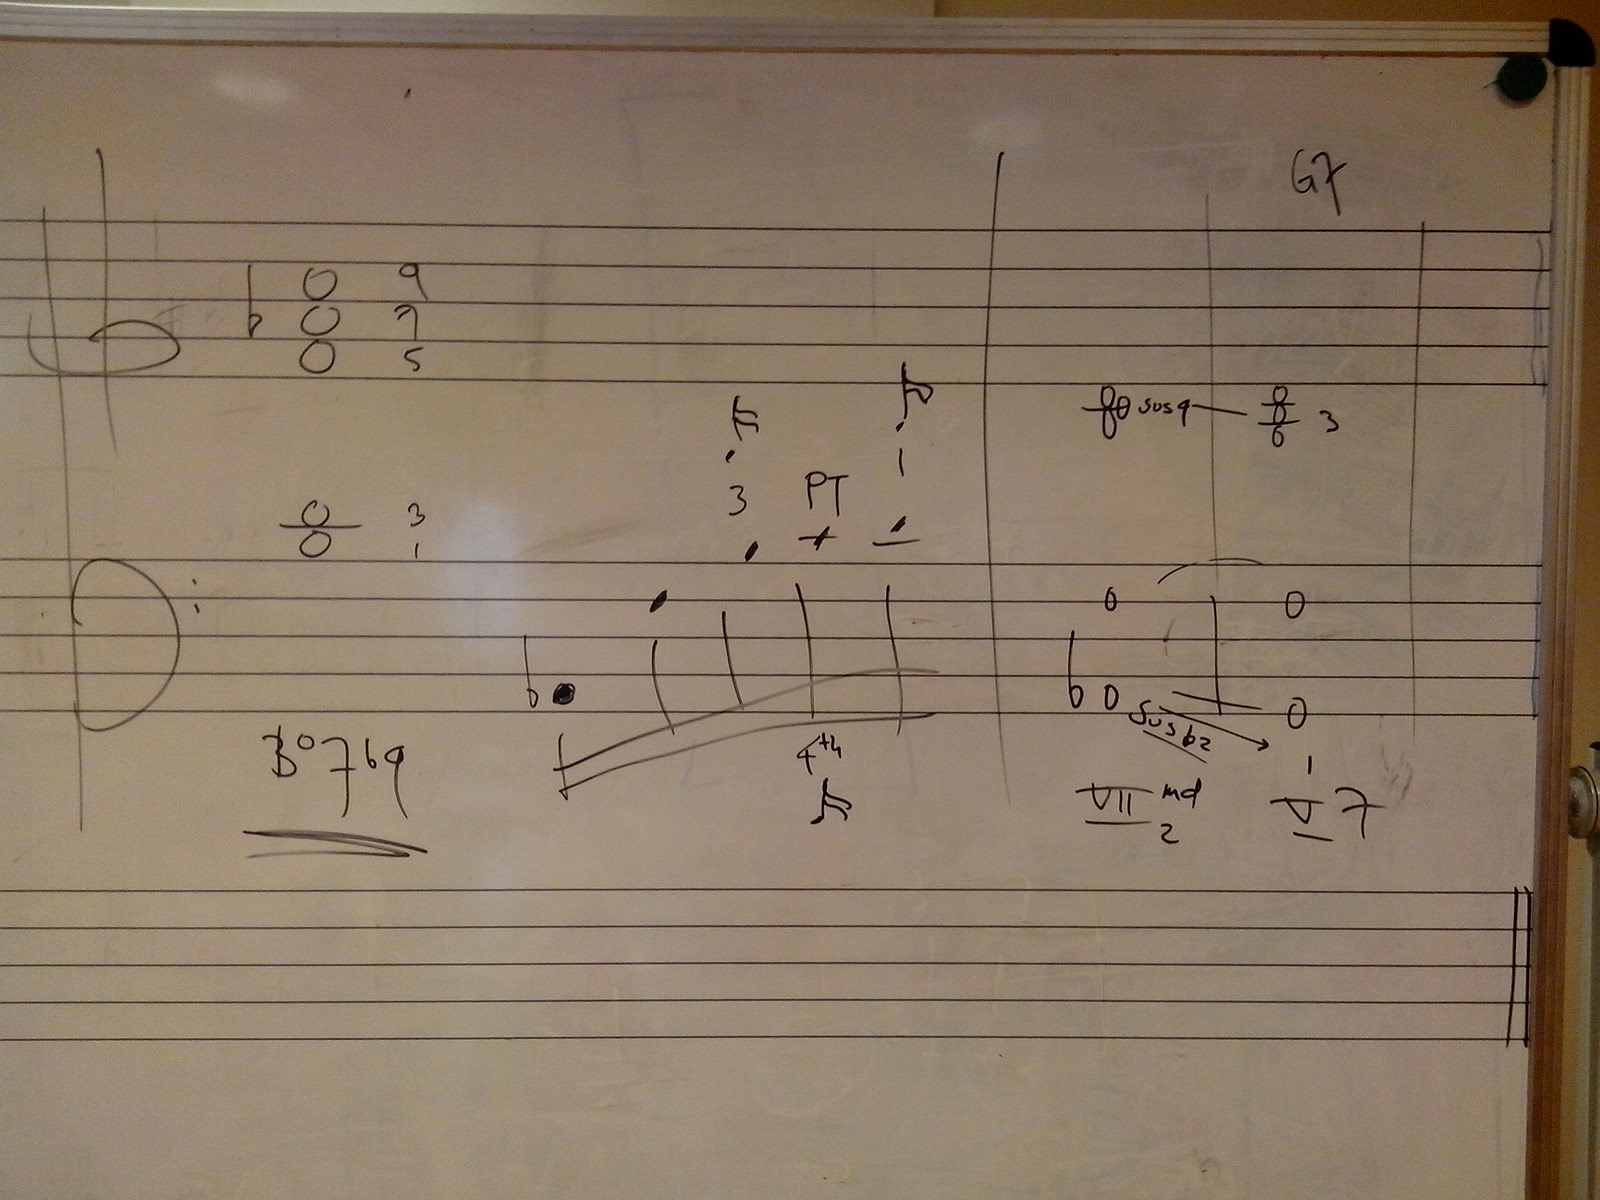 G7
b 9
b 7
5
sus4 3
3
1
3 PT 1
b
b sus b2
4th
1
B°7b9
VII md 2 V 7